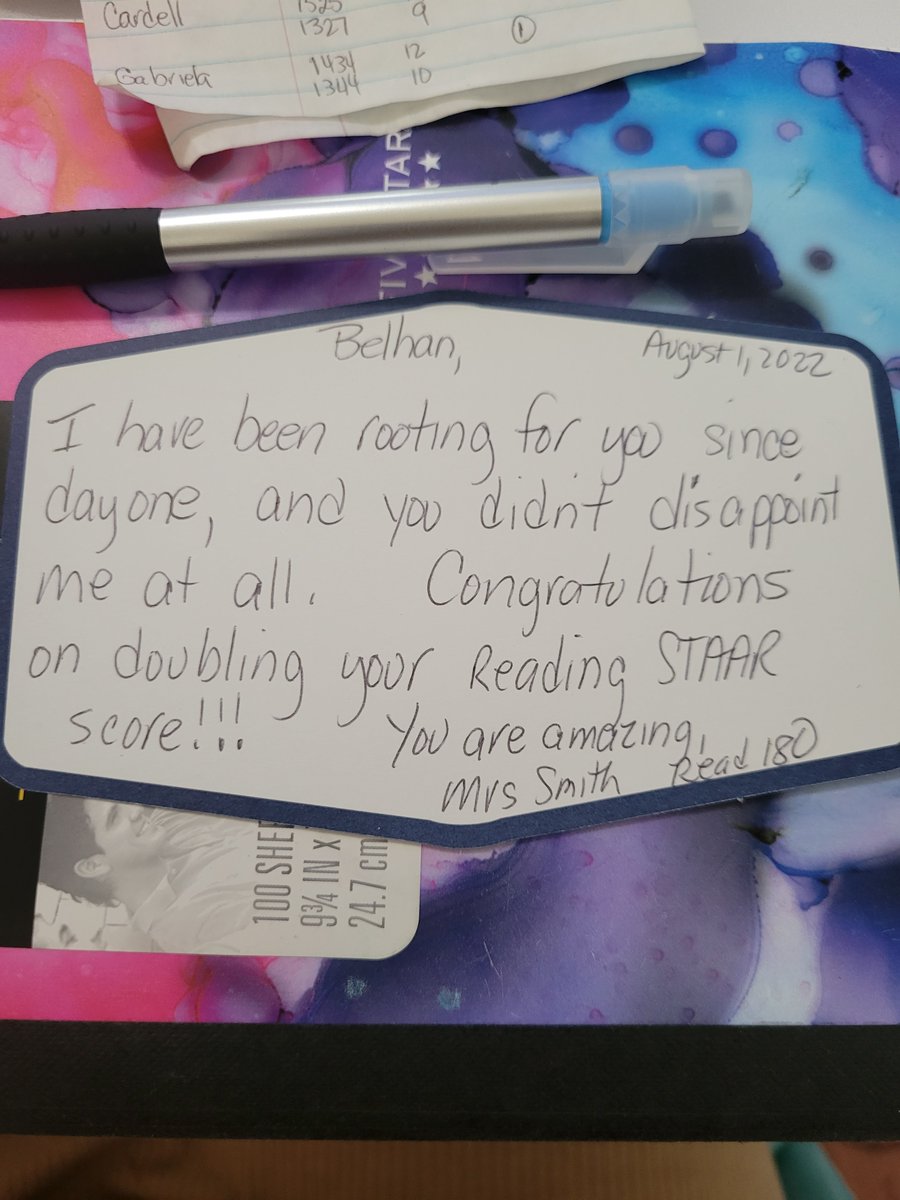 Cardell 1325 9
1327
①
Gabriela 1434 12
1344 10
TAR
TIV
Belhan,
August 1, 2022
I have been rooting for you since
day one, and you didn't disappoint
me at all. Congratulations
on doubling your Reading STAAR
score!!! You are amazing,
Mrs Smith Read 180
100 SHE
9¾ IN X
24.7 cm